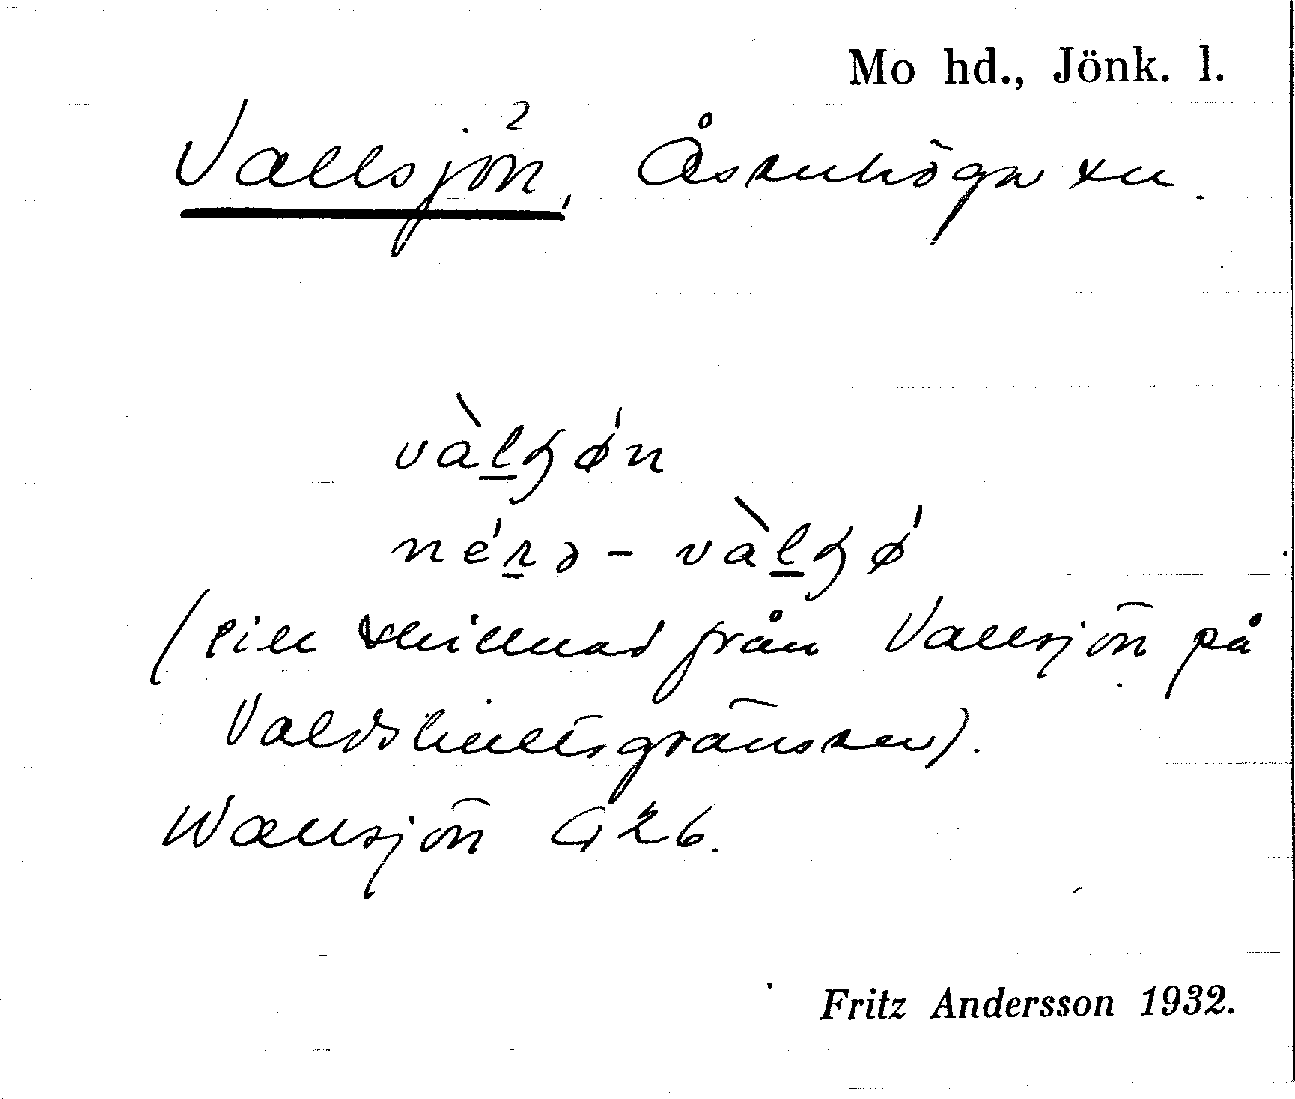 Mo hd., Jönk. l.
Vallsjön,² Åsenhöga sn.
vàlʒǿn
nérə - vàlʒǿ
(till skillnad från Vallsjön på
Valdshultsgränsen).
Wallsjön G 26.
Fritz Andersson 1932.